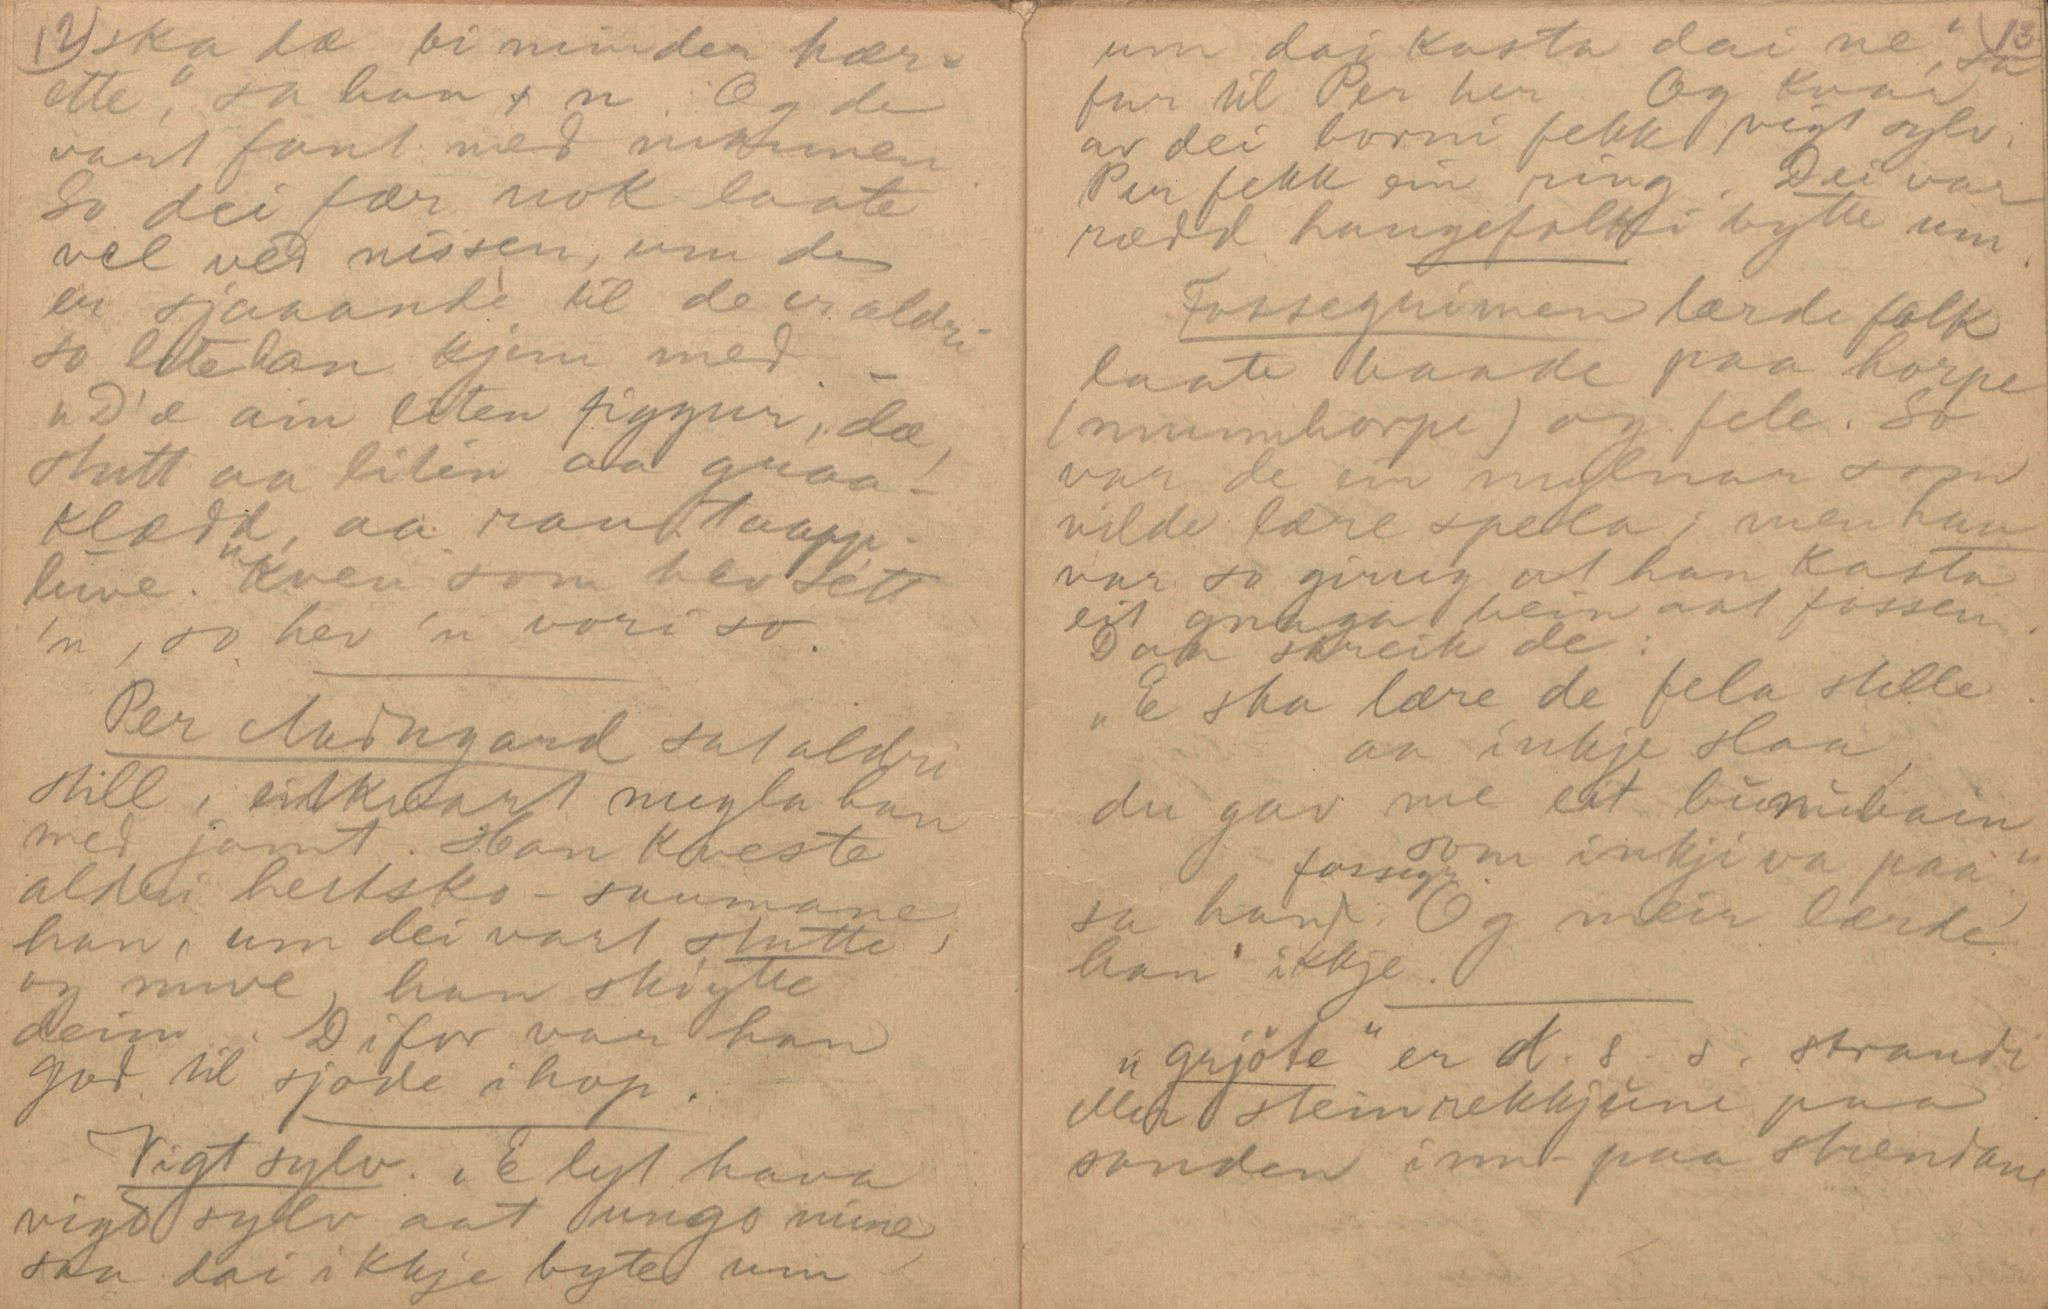 12)
ska dæ bi minder hær-
ette," sa han n. Og de
vart fant med mannen
So dei fær nok laate
vel ved nissen, um de
er sjaaande til de er aldri
so lite han kjem med. –
"D'æ ain liten figgur, dæ,
stutt aa liten aa graa-
klædd, aa rau taapp-
luve. "Kven som hev sett
'n, so hev 'n vori so.
Per Nedregard sat aldri
still, eitkvart mugla han
med jamt. Han kveste
aldri hestsko-saumane
han, um dei vart stutte,
og mive, han skøytte
deim. Difor var han
god til sjode ihop.
Vigt sylv. "E lyt hava
vigt sylv aat ungo mine,
saa dai ikkje bytes um
13
um dai kasta dai ne," sa
far til Per her. Og kvar
av dei borni fekk vigt sylv.
Per fekk ein ring. Dei var
rædd haugefolki bytte um
Fossegrimen lærde folk
laate baade paa horpe
(munnhorpe) og fele. So
var de ein mylnar som
vilde lære spela; men han
var so girug at han kasta
eit gnaga bein aat fossen.
Daa skreik de:
"E ska lære de fela stille
aa inkje slaa,
du gav me eit bain
som inkji va paa"
sa han fossegr. Og meir lærde
han ikkje.
"grjote" er d. s. s. strandi
eller steinrekkjune paa
sanden inn-paa strendane